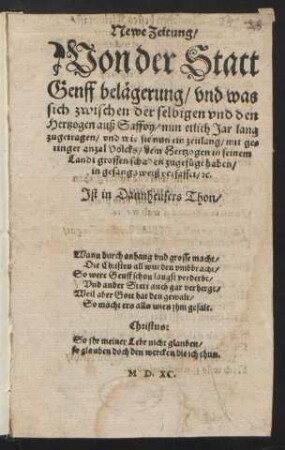 Newe Zeitung/
Von der Statt
Genff belägerung/ vnd was
sich zwischen der selbigen vnd den
Hertzogen auß Saffoy/ nun etlich Jar lang
zugetragen/ vnd wie sie nun ein zeitlang/ mit ge-
ringer anzal Volcks/ dem Hertzogen in seinem
Landt grossen schaden zugefügt haben/
in gesangs weiß verfasset/ ꝛc.
Ist in Dannheusers Thon/
Wann durch anhang vnd grosse macht/
Die Christen all wurden vmbbracht/
So were Genff schon langst verderbt/
Vnd ander Stett auch gar verhergt/
Weil aber Gott hat den gewalt/
So macht ers alls wies jhm gefalt.
Christus:
So jhr meiner Lehr nicht glauben/
so glauben doch den wercken die ich thun.
M D. XC.